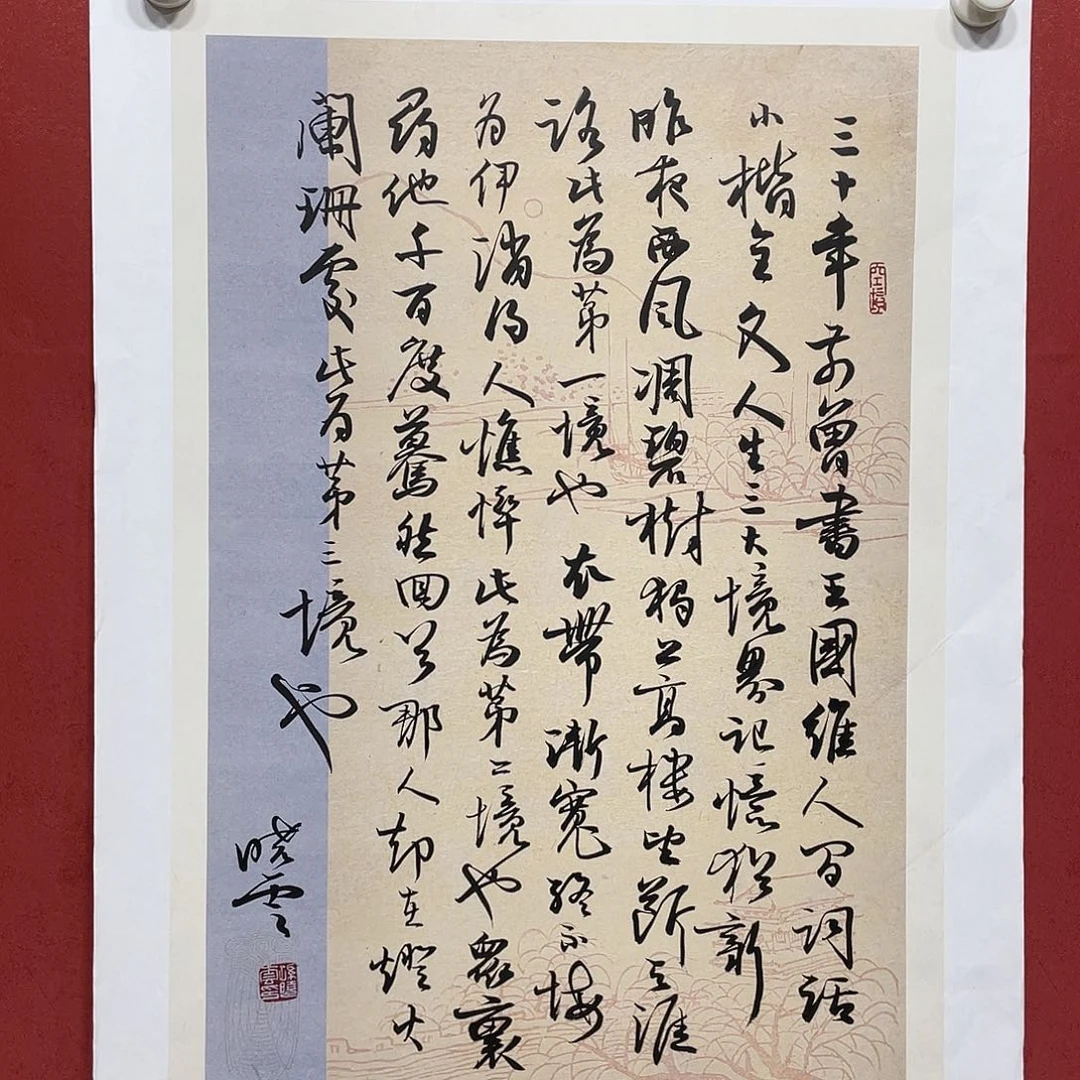 三十年前曾書王國維人間詞話
小楷全文人生三大境界記憶猶新
昨夜西風凋碧樹獨上高樓望斷天涯
路此為第一境也衣帶漸寬終不悔
為伊消得人憔悴此為第二境也眾裏
尋他千百度驀然回首那人却在燈火
闌珊處此為第三境也
曉雲